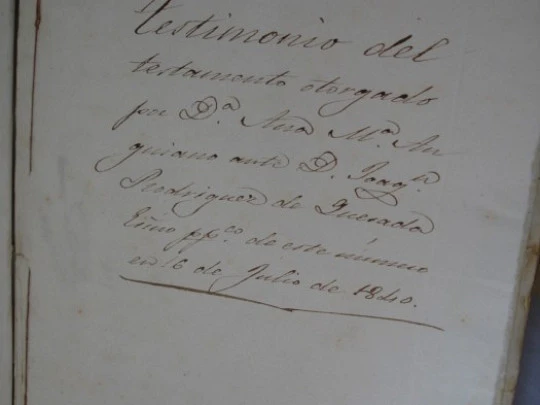 testimonio del
testamento otorgado
por D.ª Ana M.ª An
guiano ante D. Joaq.n
Rodriguez de Quesada
Esno ppco de este número
en 6 de Julio de 1840.